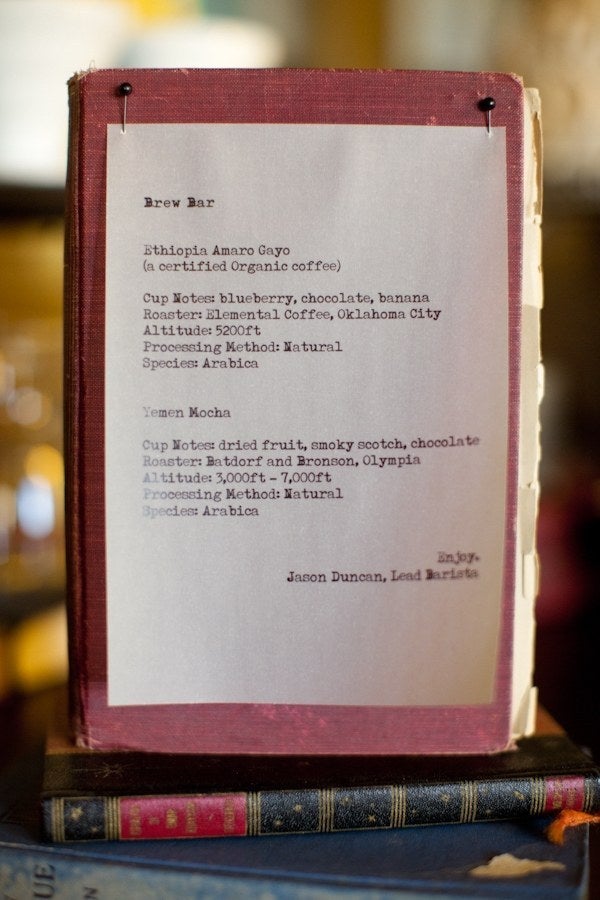 Brew Bar
Ethiopia Amaro Gayo
(a certified Organic coffee)
Cup Notes: blueberry, chocolate, banana
Roaster: Elemental Coffee, Oklahoma City
Altitude: 5200ft
Processing Method: Natural
Species: Arabica
Yemen Mocha
Cup Notes: dried fruit, smoky scotch, chocolate
Roaster: Batdorf and Bronson, Olympia
Altitude: 3,000ft - 7,000ft
Processing Method: Natural
Species: Arabica
Enjoy.
Jason Duncan, Lead Barista